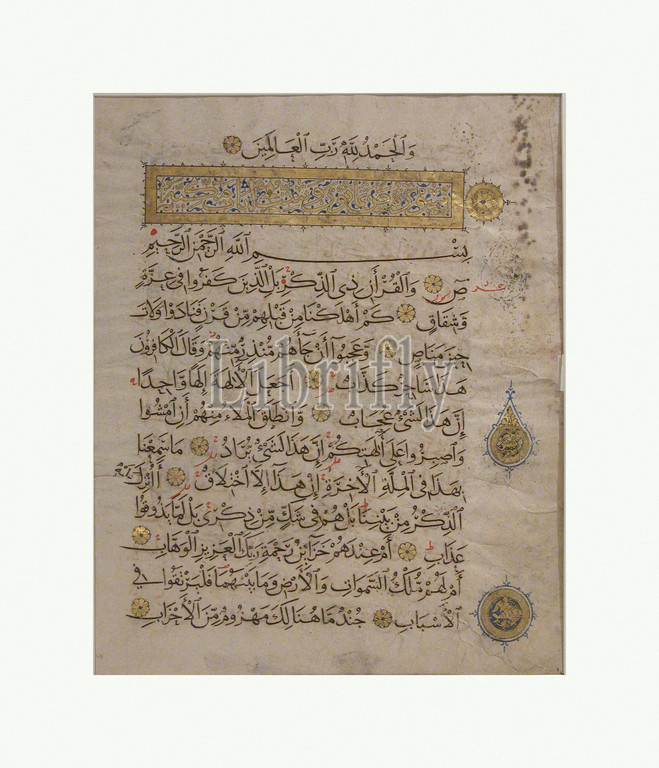 وَالْحَمْدُ لِلَّهِ رَبِّ الْعَالَمِينَ
بِسْمِ اللَّهِ الرَّحْمَنِ الرَّحِيمِ
صَ وَالْقُرْآنِ ذِي الذِّكْرِ بَلِ الَّذِينَ كَفَرُوا فِي عِزَّةٍ
وَشِقَاقٍ كَمْ أَهْلَكْنَا مِنْ قَبْلِهِمْ مِنْ قَرْنٍ فَنَادَوْا وَلَاتَ
حِينَ مَنَاصٍ وَعَجِبُوا أَنْ جَاءَهُمْ مُنْذِرٌ مِنْهُمْ وَقَالَ الْكَافِرُونَ
هَذَا سَاحِرٌ كَذَّابٌ أَجَعَلَ الْآلِهَةَ إِلَهًا وَاحِدًا
إِنَّ هَذَا لَشَيْءٌ عُجَابٌ وَانْطَلَقَ الْمَلَأُ مِنْهُمْ أَنِ امْشُوا
وَاصْبِرُوا عَلَى آلِهَتِكُمْ إِنَّ هَذَا لَشَيْءٌ يُرَادُ مَا سَمِعْنَا
بِهَذَا فِي الْمِلَّةِ الْآخِرَةِ إِنْ هَذَا إِلَّا اخْتِلَاقٌ أَأُنْزِلَ
الذِّكْرُ مِنْ بَيْنِنَا بَلْ هُمْ فِي شَكٍّ مِنْ ذِكْرِي بَلْ لَمَّا يَذُوقُوا
عَذَابِ أَمْ عِنْدَهُمْ خَزَائِنُ رَحْمَةِ رَبِّكَ الْعَزِيزِ الْوَهَّابِ
أَمْ لَهُمْ مُلْكُ السَّمَوَاتِ وَالْأَرْضِ وَمَا بَيْنَهُمَا فَلْيَرْتَقُوا فِي
الْأَسْبَابِ جُنْدٌ مَا هُنَالِكَ مَهْزُومٌ مِنَ الْأَحْزَابِ
Librifly